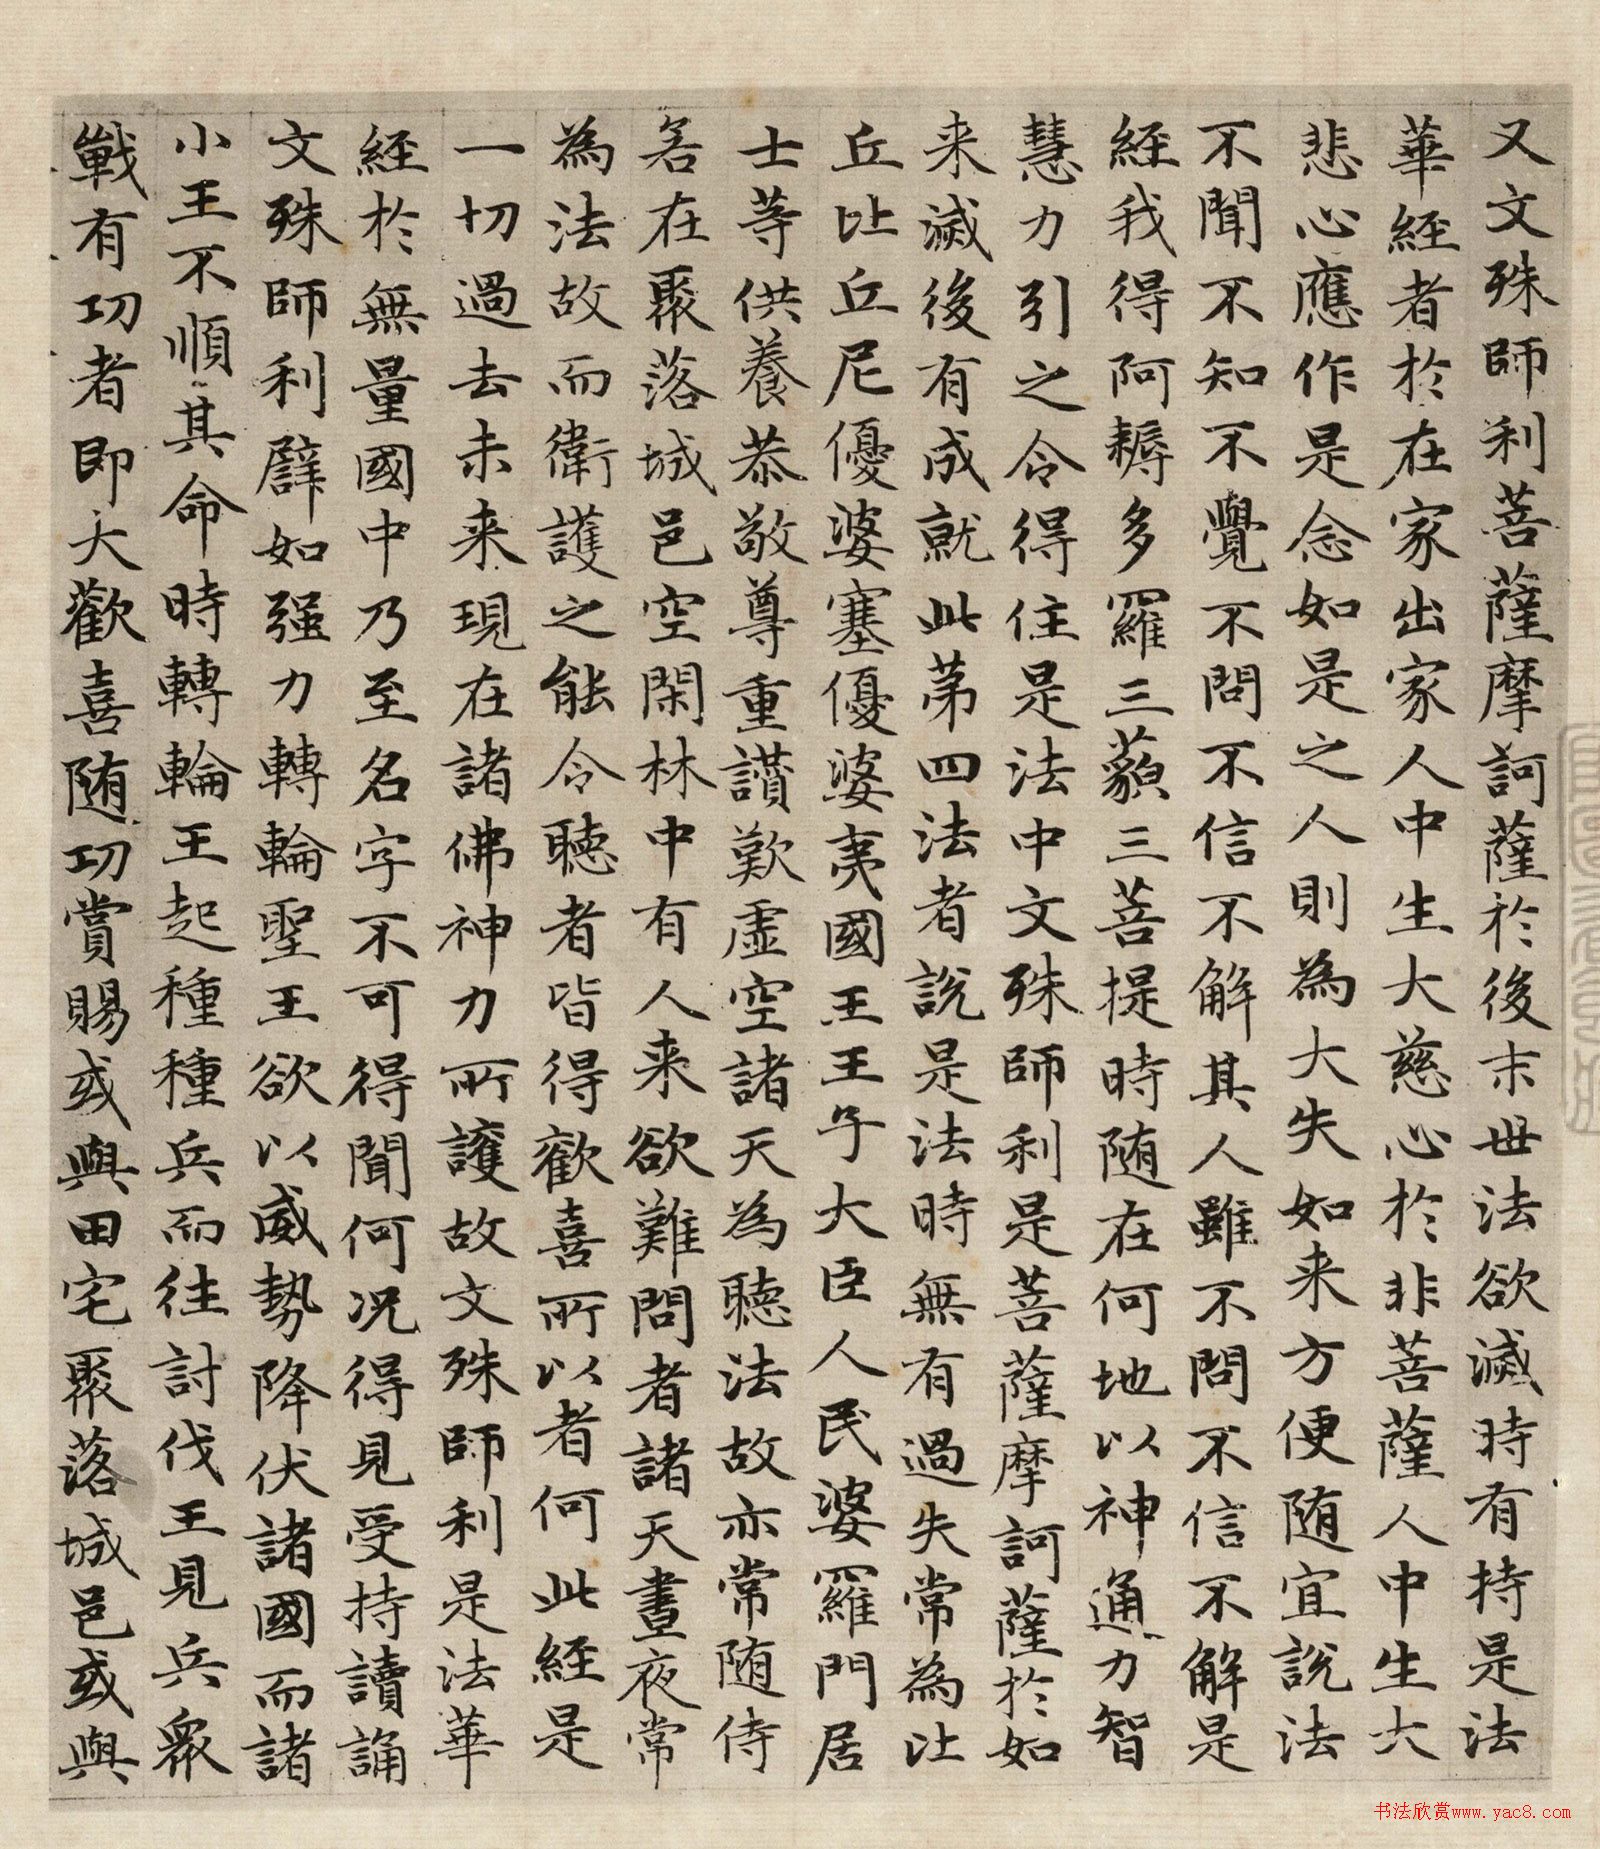 又文殊師利菩薩摩訶薩於後末世法欲滅時有持是法
華經者於在家出家人中生大慈心於非菩薩人中生大
悲心應作是念如是之人則為大失如来方便随宜說法
不聞不知不覺不問不信不解其人雖不問不信不解是
經我得阿耨多羅三藐三菩提時随在何地以神通力智
慧力引之令得住是法中文殊師利是菩薩摩訶薩於如
来滅後有成就此第四法者說是法時無有過失常為比
丘比丘尼優婆塞優婆夷國王王子大臣人民婆羅門居
士等供養恭敬尊重讃歎虛空諸天為聽法故亦常随侍
若在聚落城邑空閑林中有人来欲難問者諸天晝夜常
為法故而衛護之能令聽者皆得歡喜所以者何此經是
一切過去未来現在諸佛神力所護故文殊師利是法華
經於無量國中乃至名字不可得聞何况得見受持讀誦
文殊師利譬如强力轉輪聖王欲以威勢降伏諸國而諸
小王不順其命時轉輪王起種種兵而往討伐王見兵衆
戰有功者即大歡喜随功賞賜或與田宅聚落城邑或與
书法欣赏www.yac8.com